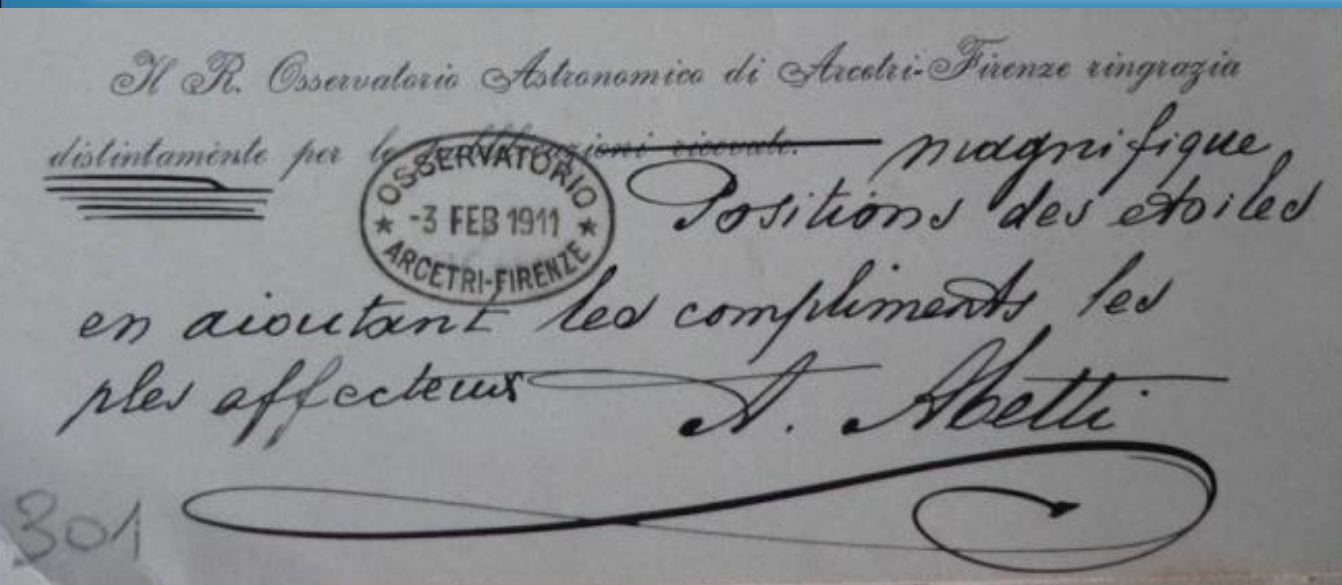 Il R. Osservatorio Astronomico di Arcetri-Firenze ringrazia
distintamente per le pubblicazioni ricevute. magnifique
Positions des etoiles
OSSERVATORIO
-3 FEB 1911
ARCETRI-FIRENZE
en aioutant les compliments les
ples affecteux
A. Abetti
301